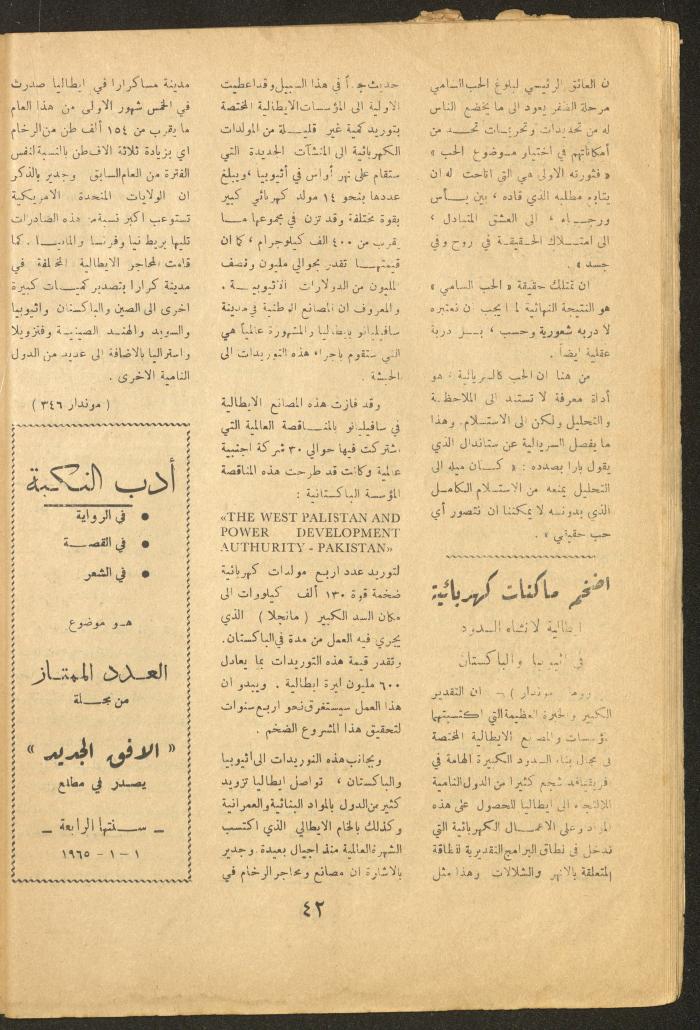 ن العائق الرئيسي لبلوغ الحب السامي
مرحلة الظفر يعود الى ما يخضع الناس
له من تحديدات وتحريمات تحد من
أمكاناتهم في اختيار موضوع الحب »
« فثورته الاولى هي التي اتاحت له ان
يتابع مطلبه الذي قاده ، بين يأس
ورجاء ، الى العشق المتبادل ،
الى امتلاك الحقيقة في روح وفي
جسد » .
ان تمتلك حقيقة « الحب السامي »
هو النتيجة النهائية لما يجب ان نعتبره
لا دربه شعورية وحسب ، بل دربة
عقلية ايضاً .
من هنا ان الحب كالسريالية ، هو
أداة معرفة لا تستند الى الملاحظة
والتحليل ولكن الى الاستسلام. وهذا
ما يفصل السريالية عن ستاندال الذي
يقول بارا بصدده : « كان ميله الى
التحليل يمنعه من الاستسلام الكامل
الذي بدونه لا يمكننا ان نتصور أي
حب حقيقي » .
اضخم ماكنات كهربائية
ايطالية لانشاء السدود
في اثيوبيا والباكستان
روما ( موندار ) - ان التقدير
الكبير والخبرة العظيمة التي اكتسبتها
مؤسسات والمصانع الايطالية المختصة
في مجال بناء السدود الكبيرة الهامة في
افريقيا قد شجع كثيرا من الدول النامية
للالتجاء الى ايطاليا للحصول على هذه
المواد وعلى الاعمال الكهربائية التي
تدخل في نطاق البرامج التقديرية للطاقة
المتعلقة بالانهر والشلالات وهذا مثل
حديث جداً في هذا السبيل وقد اعطيت
الاولية الى المؤسسات الايطالية المختصة
بتوريد كمية غير قليلة من المولدات
الكهربائية الى المنشآت الجديدة التي
ستقام على نهر أواس في أثيوبيا ، ويبلغ
عددها بنحو ١٤ مولد كهربائي كبير
بقوة مختلفة وقد تزن في مجموعها ما
يقرب من ٤٠٠ الف كيلوجرام ، كما ان
قيمتها تقدر بحوالي مليون ونصف
المليون من الدولارات الاثيوبية .
والمعروف ان المصانع الوطنية في مدينة
سافيليانو بايطاليا والمشهورة عالمياً هي
التي ستقوم باجراء هذه التوريدات الى
الحبشة .
وقد فازت هذه المصانع الايطالية
في سافيليانو بالمناقصة العالمية التي
اشتركت فيها حوالي ٣٠ شركة اجنبية
عالمية وكانت قد طرحت هذه المناقصة
المؤسسة الباكستانية :
«THE WEST PALISTAN AND
POWER DEVELOPMENT
AUTHURITY - PAKISTAN»
لتوريد عدد اربع مولدات كهربائية
ضخمة قوة ١٣٠ ألف كيلووات الى
مكان السد الكبير ( مانجلا ) الذي
يجري فيه العمل من مدة في الباكستان.
وتقدر قيمة هذه التوريدات بما يعادل
٦٠٠ مليون ليرة ايطالية . ويبدو ان
هذا العمل سيستغرق نحو اربع سنوات
لتحقيق هذا المشروع الضخم .
وبجانب هذه التوريدات الى اثيوبيا
والباكستان ، تواصل ايطاليا تزويد
كثير من الدول بالمواد البنائية والعمرانية
وكذلك بالخام الايطالي الذي اكتسب
الشهرة العالمية منذ اجيال بعيدة . وجدير
بالاشارة ان مصانع ومحاجر الرخام في
مدينة مساكرارا في ايطاليا صدرت
في الخمس شهور الاولى من هذا العام
ما يقرب من ١٥٤ ألف طن من الرخام
اي بزيادة ثلاثة الاف طن بالنسبة لنفس
الفترة من العام السابق وجدير بالذكر
ان الولايات المتحدة الامريكية
تستوعب اكبر نسبة من هذه الصادرات
تليها بريطانيا وفرنسا والمانيا . كما
قامت المحاجر الايطالية المختلفة في
مدينة كرارا بتصدير كميات كبيرة
اخرى الى الصين والباكستان واثيوبيا
والسويد والهند الصينية وفنزويلا
واستراليا بالاضافة الى عديد من الدول
النامية الاخرى .
( موندار ٣٤٦ )
أدب النكبة
• في الرواية
• في القصة
• في الشعر
هو موضوع
العدد الممتاز
من مجلة
« الافق الجديد »
يصدر في مطلع
– سنتها الرابعة –
١ - ١ - ١٩٦٥
٤٢